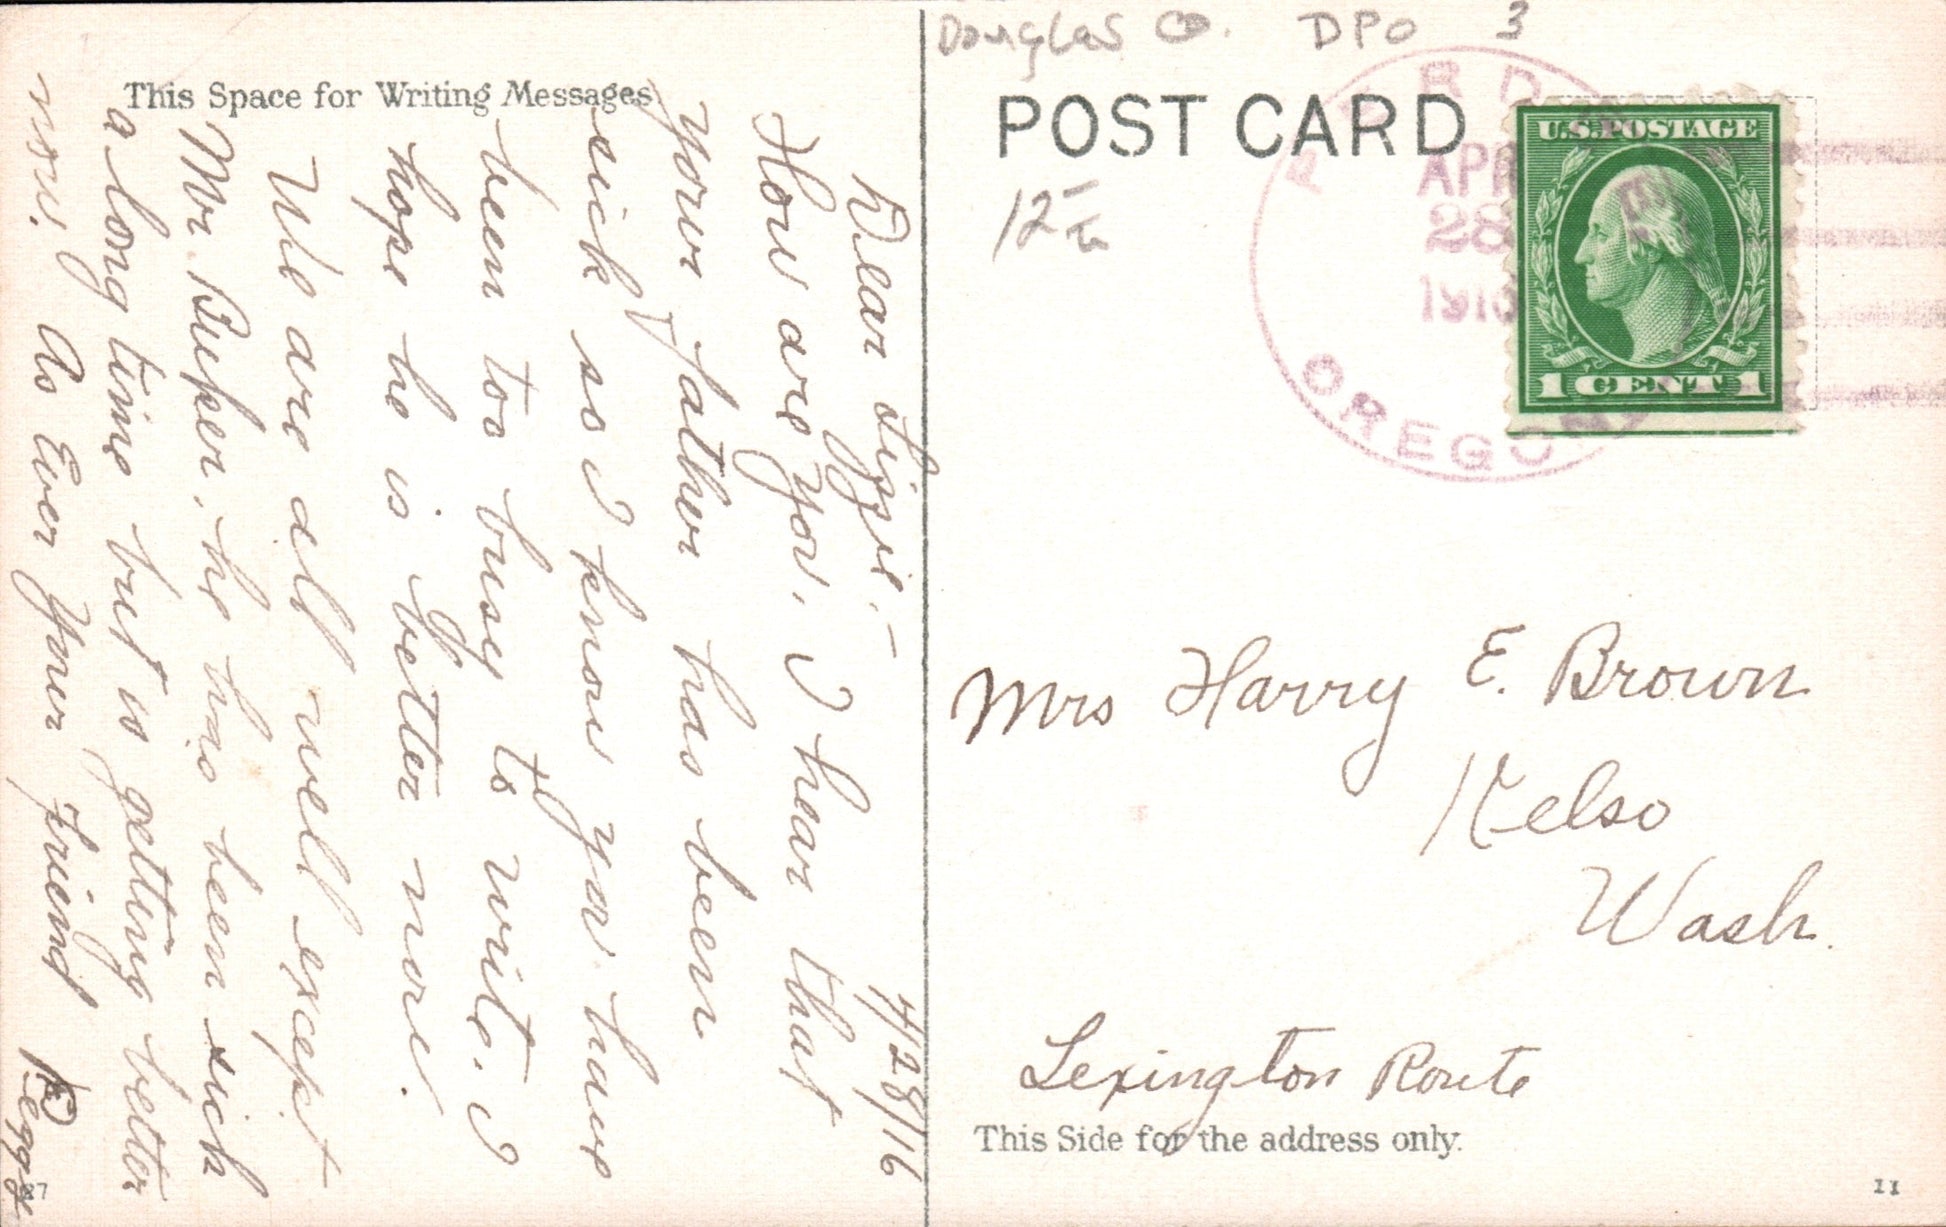 Douglas Co. DPO 3
This Space for Writing Messages
POST CARD
U.S. POSTAGE
1 CENT 1
APR
28
1916
OREGON
12
4/28/16
Dear Lizzie:—
How are you, I hear that
your father has been
sick so I know you have
been too busy to write. I
hope he is better now.
We are all well except
Mr. he has been sick
a long time but is getting better
now. As Ever Your Friend Peggy
Mrs Harry E. Brown
Kelso
Wash.
Lexington Route
This Side for the address only.
11